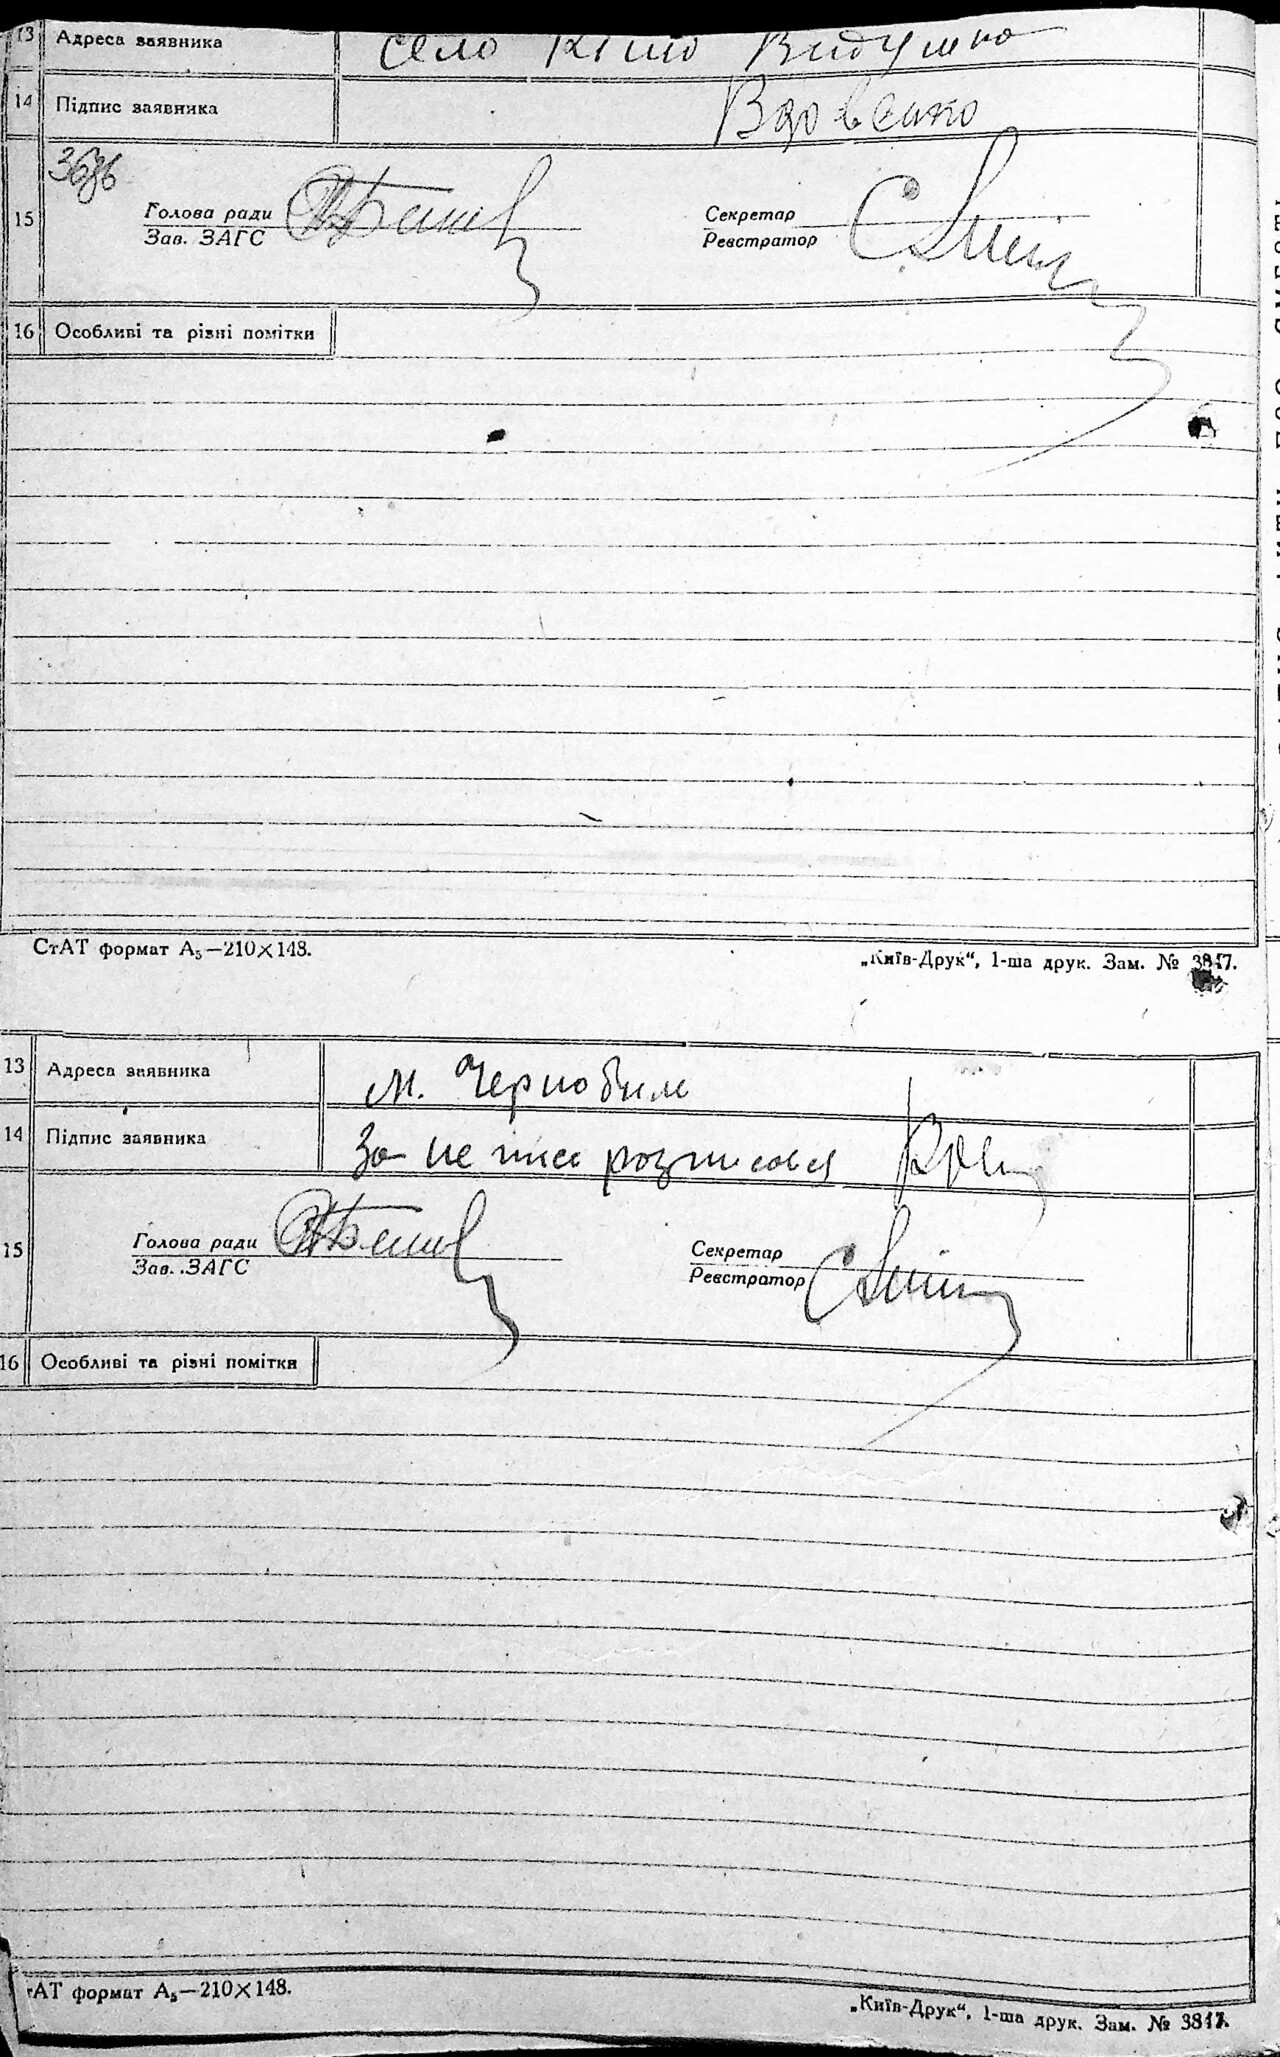 13 Адреса заявника село
14 Підпис заявника Вдовенко
15 Голова ради Секретар
Зав. ЗАГС Реєстратор
16 Особливі та різні помітки
СтАТ формат А₅—210×148. „Київ-Друк“, 1-ша друк. Зам. № 3817.
13 Адреса заявника м. Чернобиль
14 Підпис заявника За не розписався
15 Голова ради Секретар
Зав. ЗАГС Реєстратор
16 Особливі та різні помітки
тАТ формат А₅—210×148. „Київ-Друк“, 1-ша друк. Зам. № 3817.